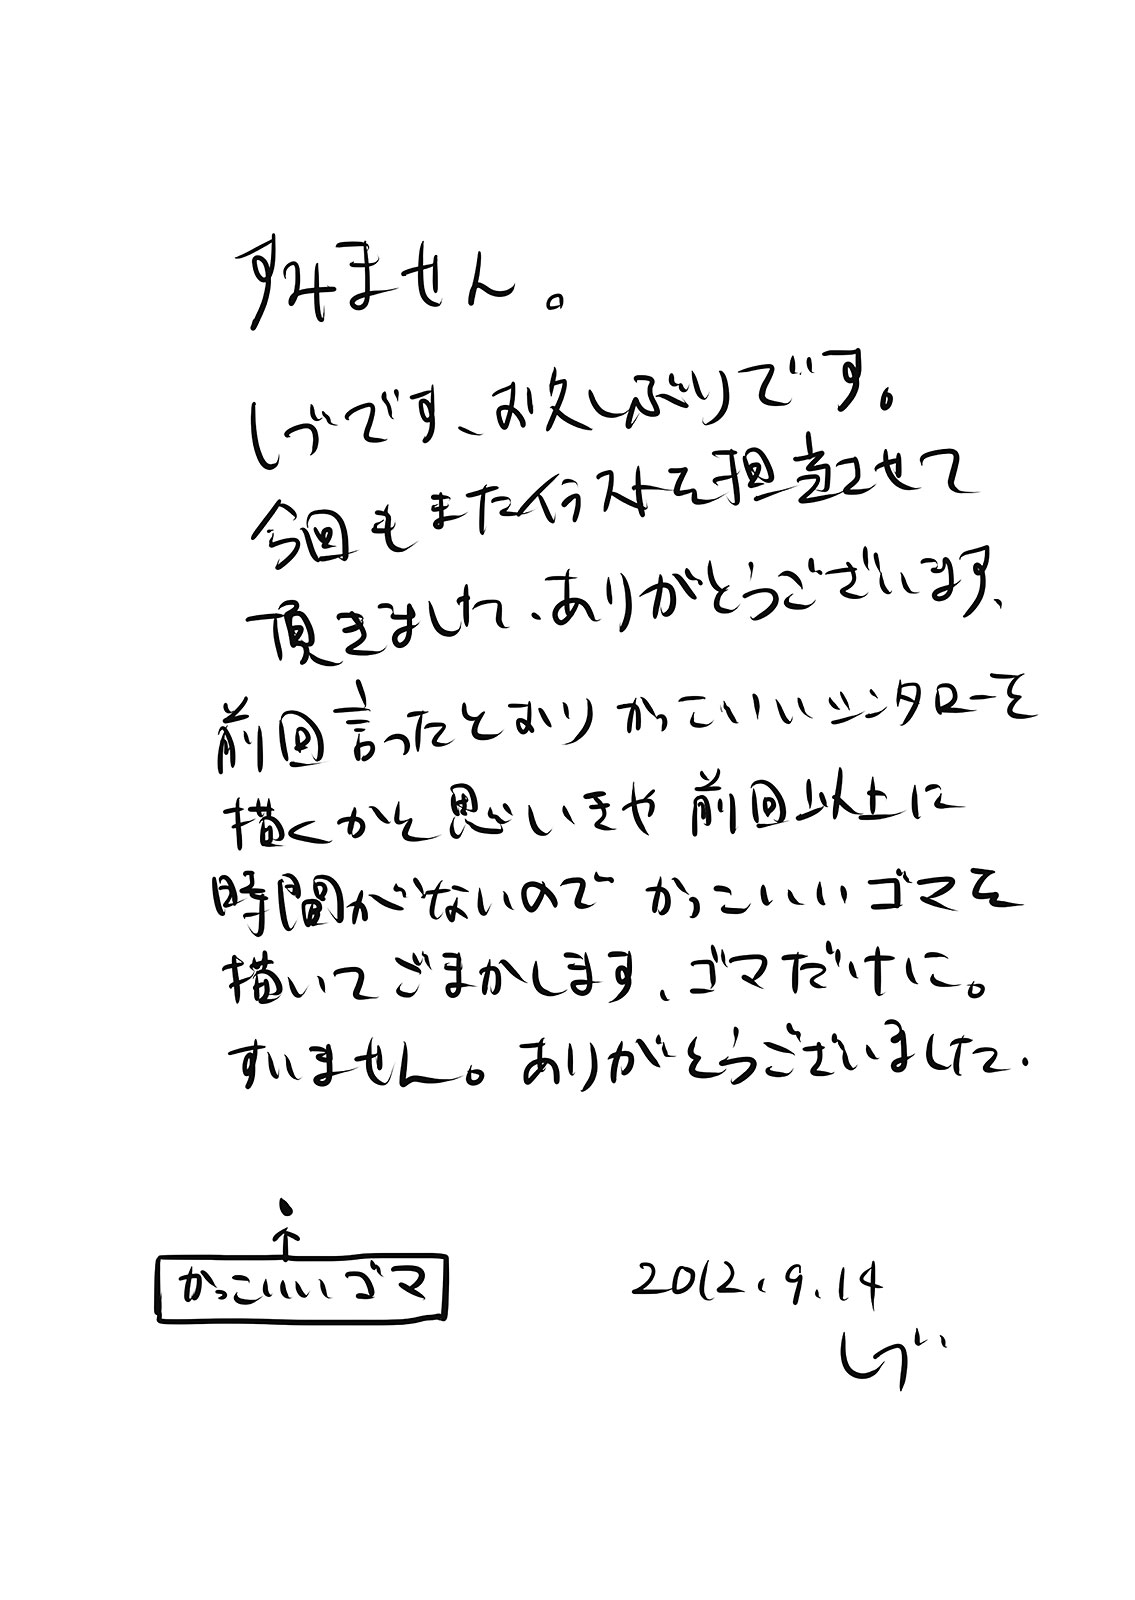 すみません。
しづです、お久しぶりです。
今回もまたイラストを担当させて
頂きました、ありがとうございます、
前回言ったとおりかっこいいシンタローを
描くかと思いきや前回以上に
時間がないのでかっこいいゴマを
描いてごまかします、ゴマだけに。
すいません。ありがとうございました.
かっこいいゴマ
2012.9.14
しづ